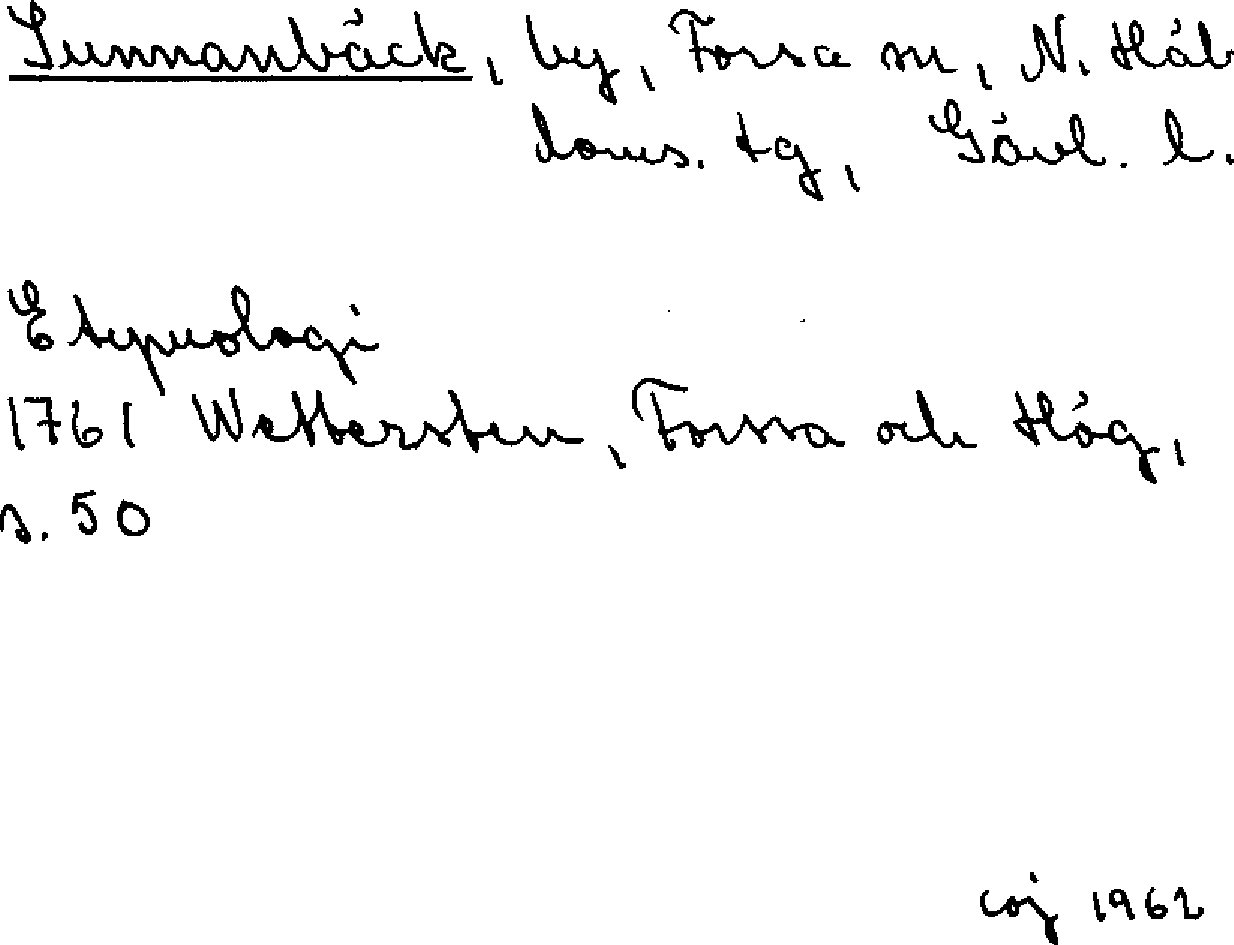 Sunnanbäck, by, Forsa sn, N. Häls.
doms. tg, Gävl. l.
Etymologi
1761 Wettersten, Forssa och Hög,
s. 50
1962